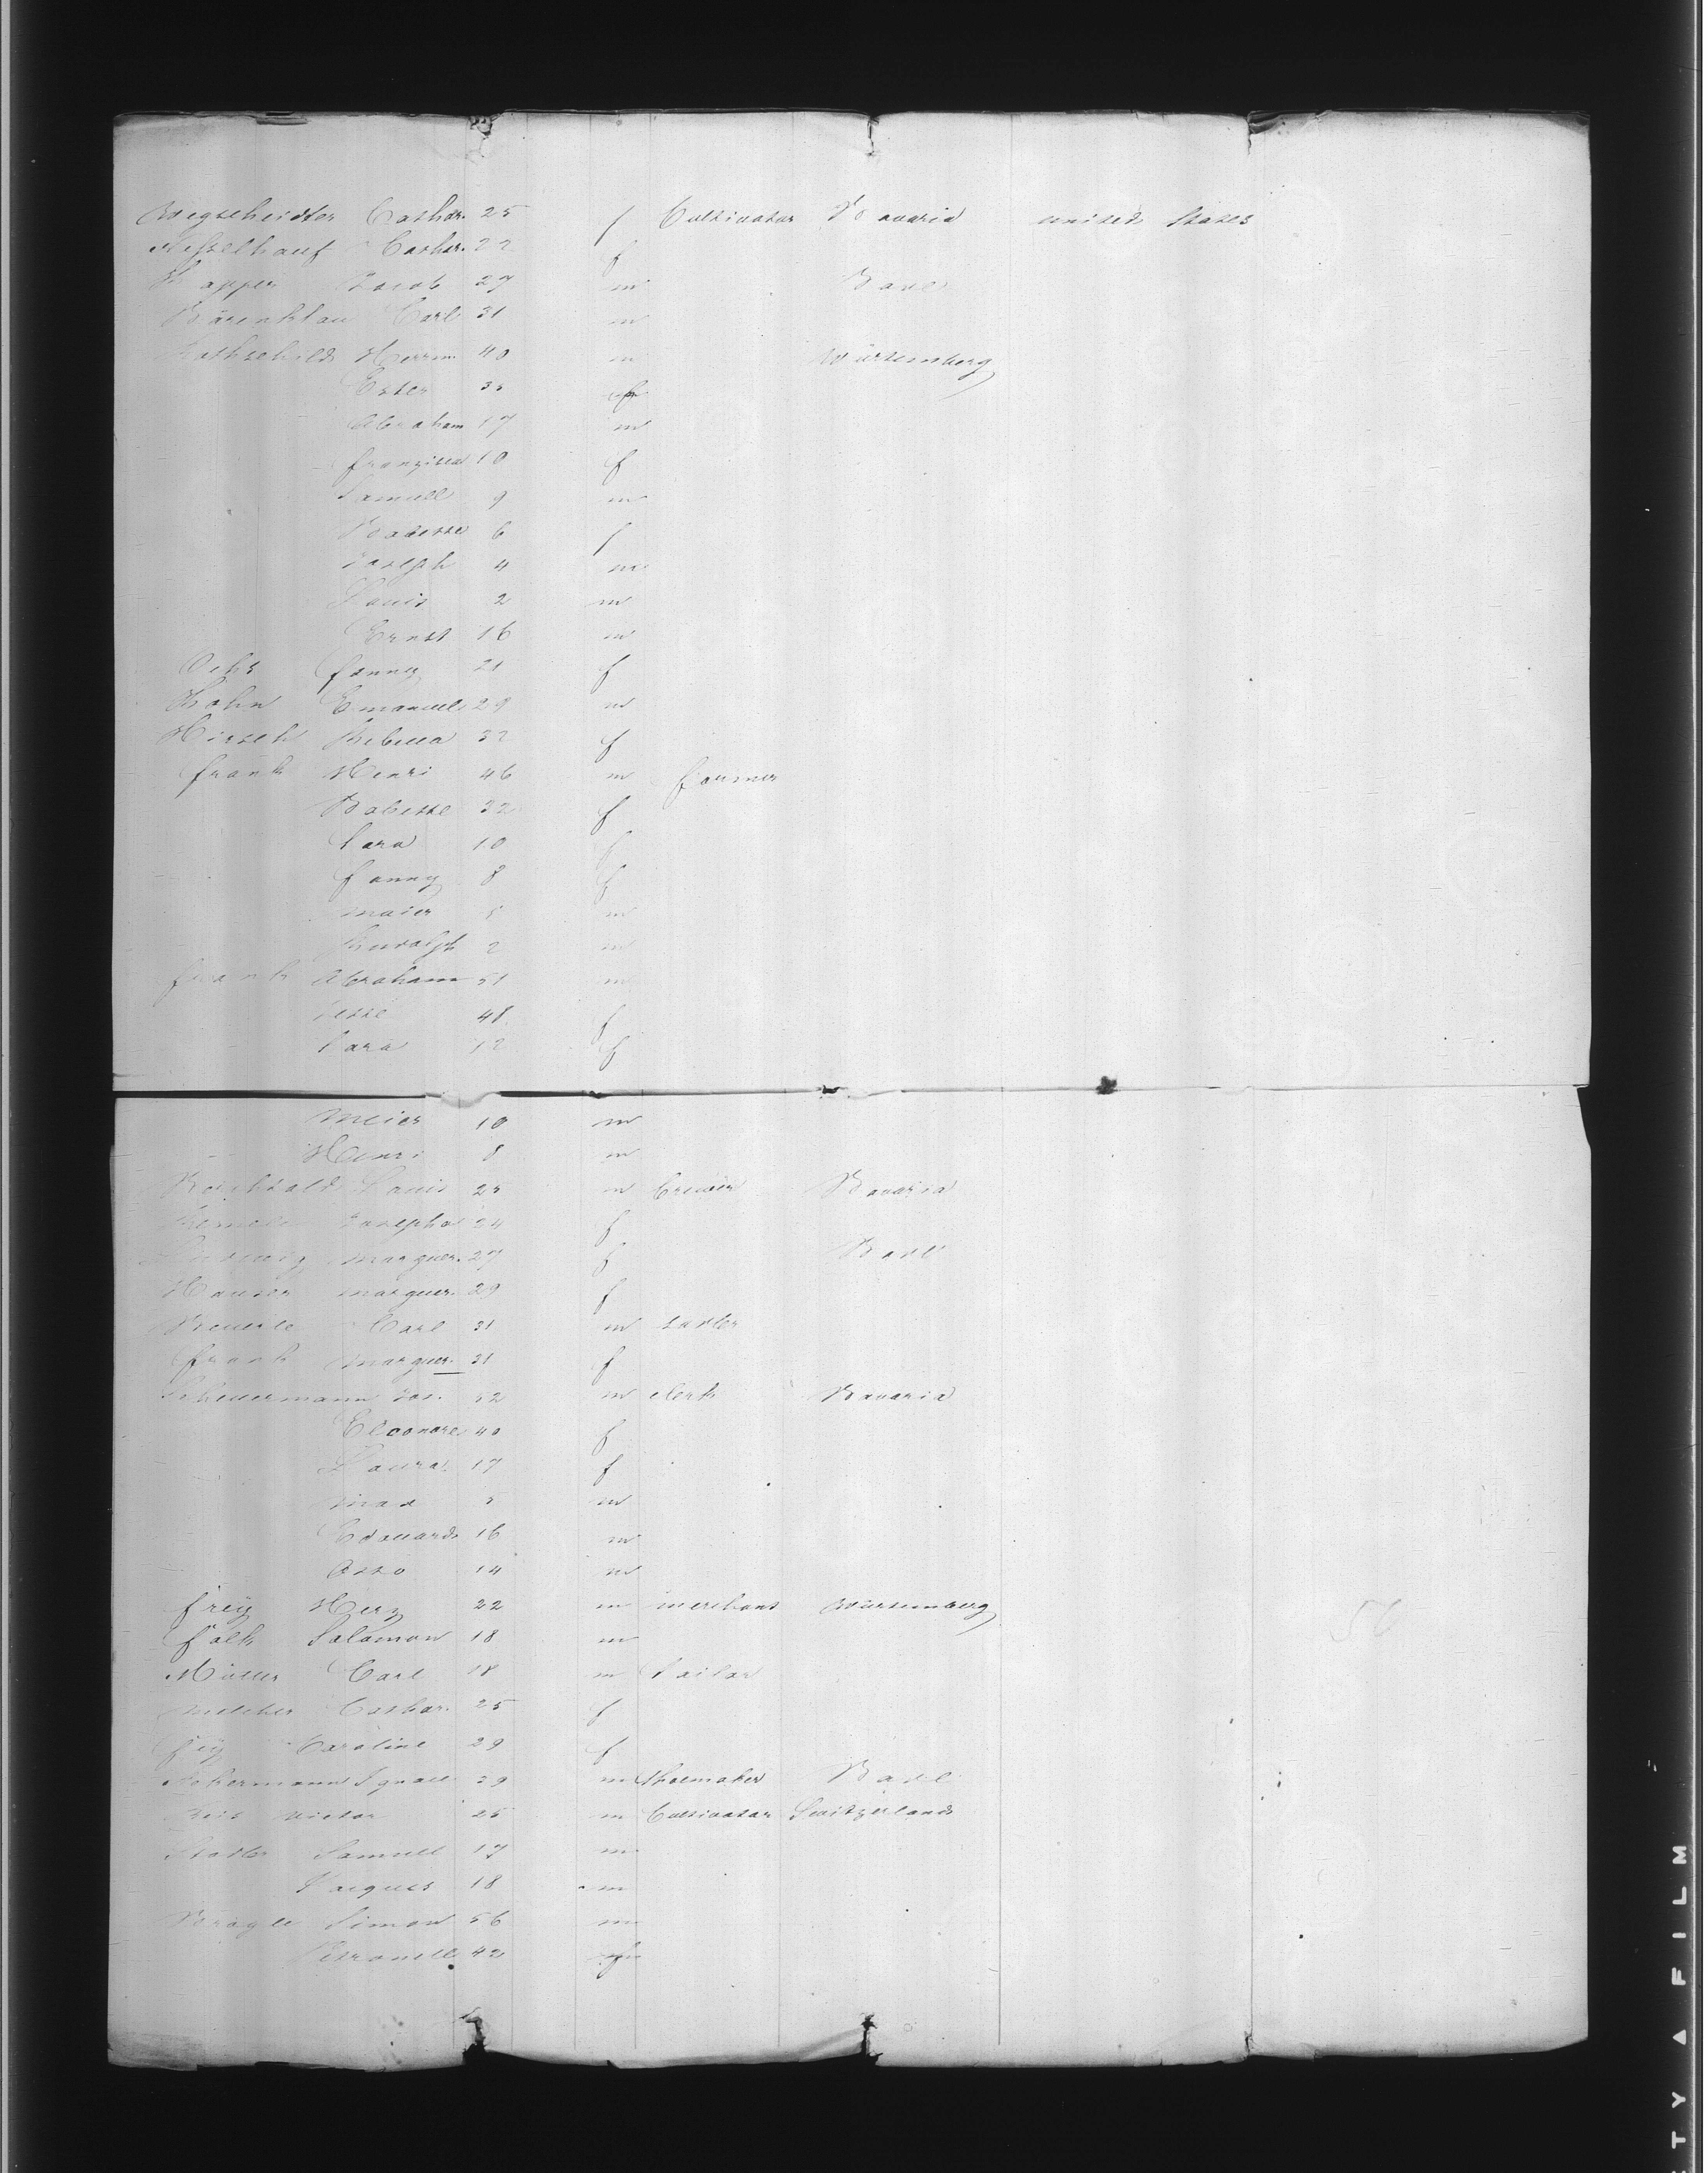 Wegscheider Cathar. 25 f Cultivator Bavaria united States
Cathar. 22 f
Kapper Jacob 27 m Bade
Bärenklau Carl 31 m
Rothschild Herrm. 40 m Würtemberg
Ester 35 f
Abraham 17 m
Franzisca 10 f
Samuell 9 m
Babette 6 f
Joseph 4 m
Louis 2 m
Ernst 16 m
Ochs fanny 21 f
Kohn Emanuel 29 m
Hirsch Rebecca 32 f
frank Henri 46 m farmer
Babette 32 f
Sara 10 f
fanny 8 f
maier 5 m
Rudolph 2 m
frank Abraham 51 m
Jette 48 f
Sara 12 f
Meier 10 m
Henri 8 m
Louis 25 m brewer Bavaria
Josepha 24 f
Ludwig marguer. 27 f Bade
Hauser marguer. 29 f
Beuerle Carl 31 m sadler
frank marguer. 31 f
Scheuermann Jos. 52 m clerk Bavaria
Eleonore 40 f
Laura 17 f
max 5 m
Edouard 16 m
Otto 14 m
frey Herz 22 m merchant Würtemberg
falk Salomon 18 m
Müller Carl 18 m Tailor
Melcher Cathar. 25 f
Caroline 29 f
Ackermann Ignace 29 m Shoemaker Bade
Victor 25 m Cultivator Switzerland
Stadler Samuell 17 m
Jacques 18 m
Brägle Simon 56 m
Petronell 42 f
56
TY A FILM